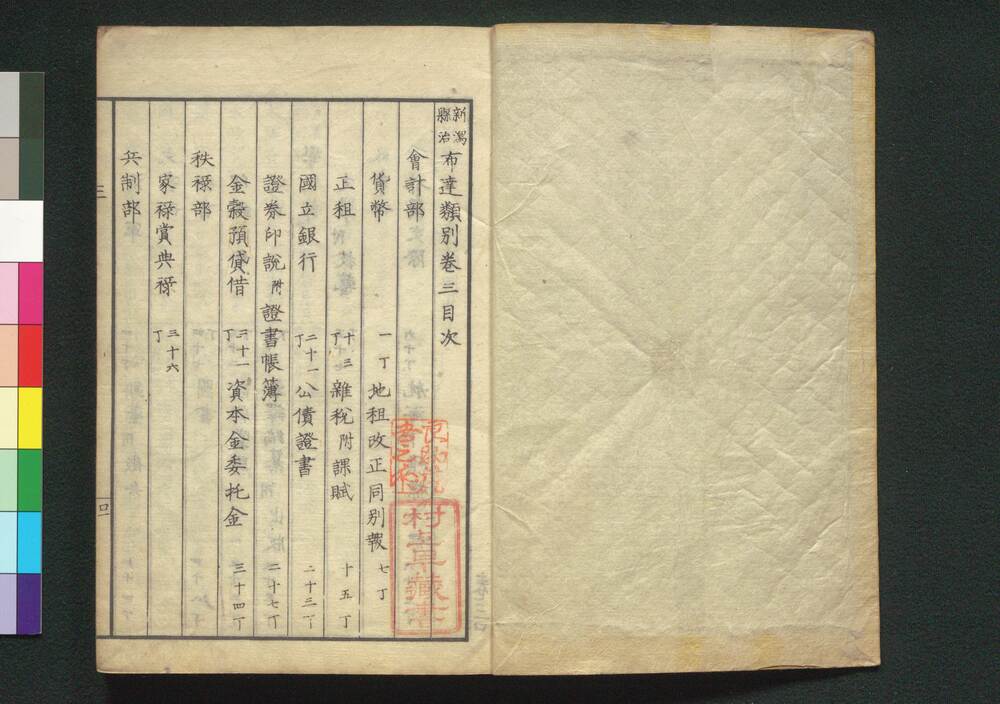 新潟縣治布達類別卷三目次
會計部
貨幣 一丁 地租改正同別報 七丁
正租 十三丁 雜税附課賦 十五丁
國立銀行 二十一丁 公債證書 二十三丁
證券印說附證書帳簿 二十七丁
金穀預貸借 三十一丁 資本金委托金 三十四丁
秩祿部
家祿賞典祿 三十六丁
兵制部
三
口
村 藏